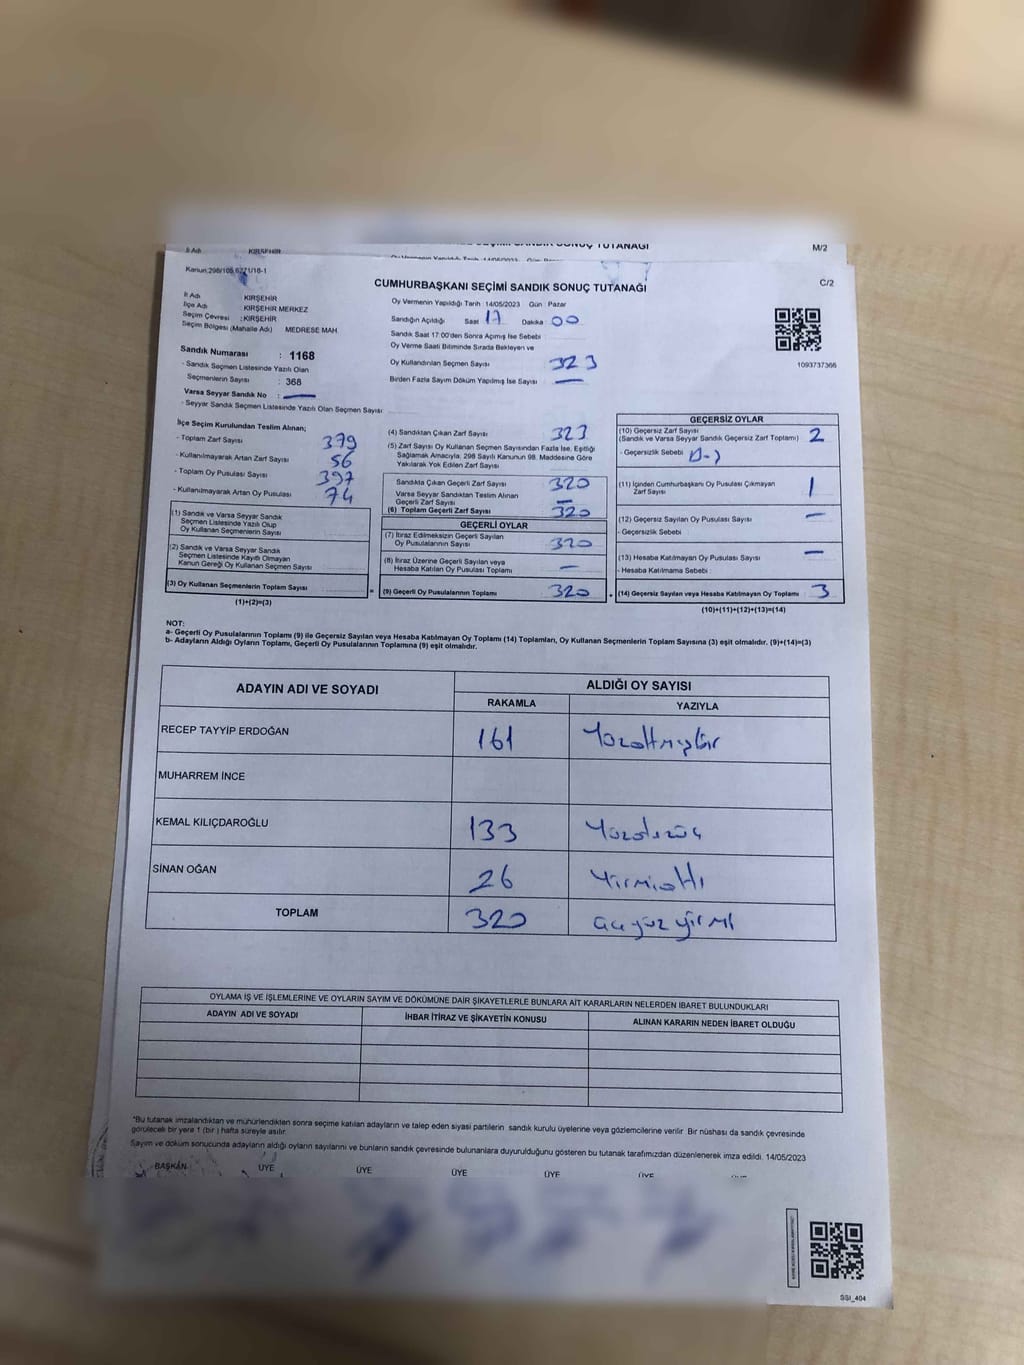 İl Adı : KIRŞEHİR
SEÇİMİ SANDIK SONUÇ TUTANAĞI
M/2
Kanun:298/105,6271/16-1
CUMHURBAŞKANI SEÇİMİ SANDIK SONUÇ TUTANAĞI
C/2
İl Adı : KIRŞEHİR
İlçe Adı : KIRŞEHİR MERKEZ
Seçim Çevresi : KIRŞEHİR
Seçim Bölgesi (Mahalle Adı) MEDRESE MAH.
Sandık Numarası : 1168
- Sandık Seçmen Listesinde Yazılı Olan
Seçmenlerin Sayısı : 368
Varsa Seyyar Sandık No : —
- Seyyar Sandık Seçmen Listesinde Yazılı Olan Seçmen Sayısı
Oy Vermenin Yapıldığı Tarih 14/05/2023 Gün Pazar
Sandığın Açıldığı Saat 17 Dakika 00
Sandık Saat 17:00'den Sonra Açımış İse Sebebi
Oy Verme Saati Bitiminde Sırada Bekleyen ve
Oy Kullandırılan Seçmen Sayısı 323
Birden Fazla Sayım Döküm Yapılmış İse Sayısı —
1093737366
İlçe Seçim Kurulundan Teslim Alınan;
- Toplam Zarf Sayısı 379
- Kullanılmayarak Artan Zarf Sayısı 56
- Toplam Oy Pusulası Sayısı 397
- Kullanılmayarak Artan Oy Pusulası 74
(1) Sandık ve Varsa Seyyar Sandık
Seçmen Listesinde Yazılı Olup
Oy Kullanan Seçmenlerin Sayısı
(2) Sandık ve Varsa Seyyar Sandık
Seçmen Listesinde Kayıtlı Olmayan
Kanun Gereği Oy Kullanan Seçmen Sayısı
(3) Oy Kullanan Seçmenlerin Toplam Sayısı
(1)+(2)=(3)
(4) Sandıktan Çıkan Zarf Sayısı 323
(5) Zarf Sayısı Oy Kullanan Seçmen Sayısından Fazla İse, Eşitliği
Sağlamak Amacıyla, 298 Sayılı Kanunun 98. Maddesine Göre
Yakılarak Yok Edilen Zarf Sayısı
Sandıkta Çıkan Geçerli Zarf Sayısı 320
Varsa Seyyar Sandıktan Teslim Alınan
Geçerli Zarf Sayısı —
(6) Toplam Geçerli Zarf Sayısı 320
GEÇERLİ OYLAR
(7) İtiraz Edilmeksizin Geçerli Sayılan
Oy Pusulalarının Sayısı 320
(8) İtiraz Üzerine Geçerli Sayılan veya
Hesaba Katılan Oy Pusulası Toplamı —
= (9) Geçerli Oy Pusulalarının Toplamı 320
GEÇERSİZ OYLAR
(10) Geçersiz Zarf Sayısı 2
(Sandık ve Varsa Seyyar Sandık Geçersiz Zarf Toplamı)
- Geçersizlik Sebebi
(11) İçinden Cumhurbaşkanı Oy Pusulası Çıkmayan
Zarf Sayısı 1
(12) Geçersiz Sayılan Oy Pusulası Sayısı —
- Geçersizlik Sebebi
(13) Hesaba Katılmayan Oy Pusulası Sayısı —
- Hesaba Katılmama Sebebi
+ (14) Geçersiz Sayılan veya Hesaba Katılmayan Oy Toplamı 3
(10)+(11)+(12)+(13)=(14)
NOT:
a- Geçerli Oy Pusulalarının Toplamı (9) ile Geçersiz Sayılan veya Hesaba Katılmayan Oy Toplamı (14) Toplamları, Oy Kullanan Seçmenlerin Toplam Sayısına (3) eşit olmalıdır. (9)+(14)=(3)
b- Adayların Aldığı Oyların Toplamı, Geçerli Oy Pusulalarının Toplamına (9) eşit olmalıdır.
ADAYIN ADI VE SOYADI ALDIĞI OY SAYISI
RAKAMLA YAZIYLA
RECEP TAYYİP ERDOĞAN 161 Yüzaltmışbir
MUHARREM İNCE
KEMAL KILIÇDAROĞLU 133 Yüzotuzüç
SİNAN OĞAN 26 Yirmialtı
TOPLAM 320 üçyüz yirmi
OYLAMA İŞ VE İŞLEMLERİNE VE OYLARIN SAYIM VE DÖKÜMÜNE DAİR ŞİKAYETLERLE BUNLARA AİT KARARLARIN NELERDEN İBARET BULUNDUKLARI
ADAYIN ADI VE SOYADI İHBAR İTİRAZ VE ŞİKAYETİN KONUSU ALINAN KARARIN NEDEN İBARET OLDUĞU
*Bu tutanak imzalandıktan ve mühürlendikten sonra seçime katılan adayların ve talep eden siyasi partilerin sandık kurulu üyelerine veya gözlemcilerine verilir. Bir nüshası da sandık çevresinde
görülecek bir yere 1 (bir) hafta süreyle asılır.
Sayım ve döküm sonucunda adayların aldığı oyların sayılarını ve bunların sandık çevresinde bulunanlara duyurulduğunu gösteren bu tutanak tarafımızdan düzenlenerek imza edildi. 14/05/2023
BAŞKAN ÜYE ÜYE ÜYE ÜYE ÜYE
SSI_404